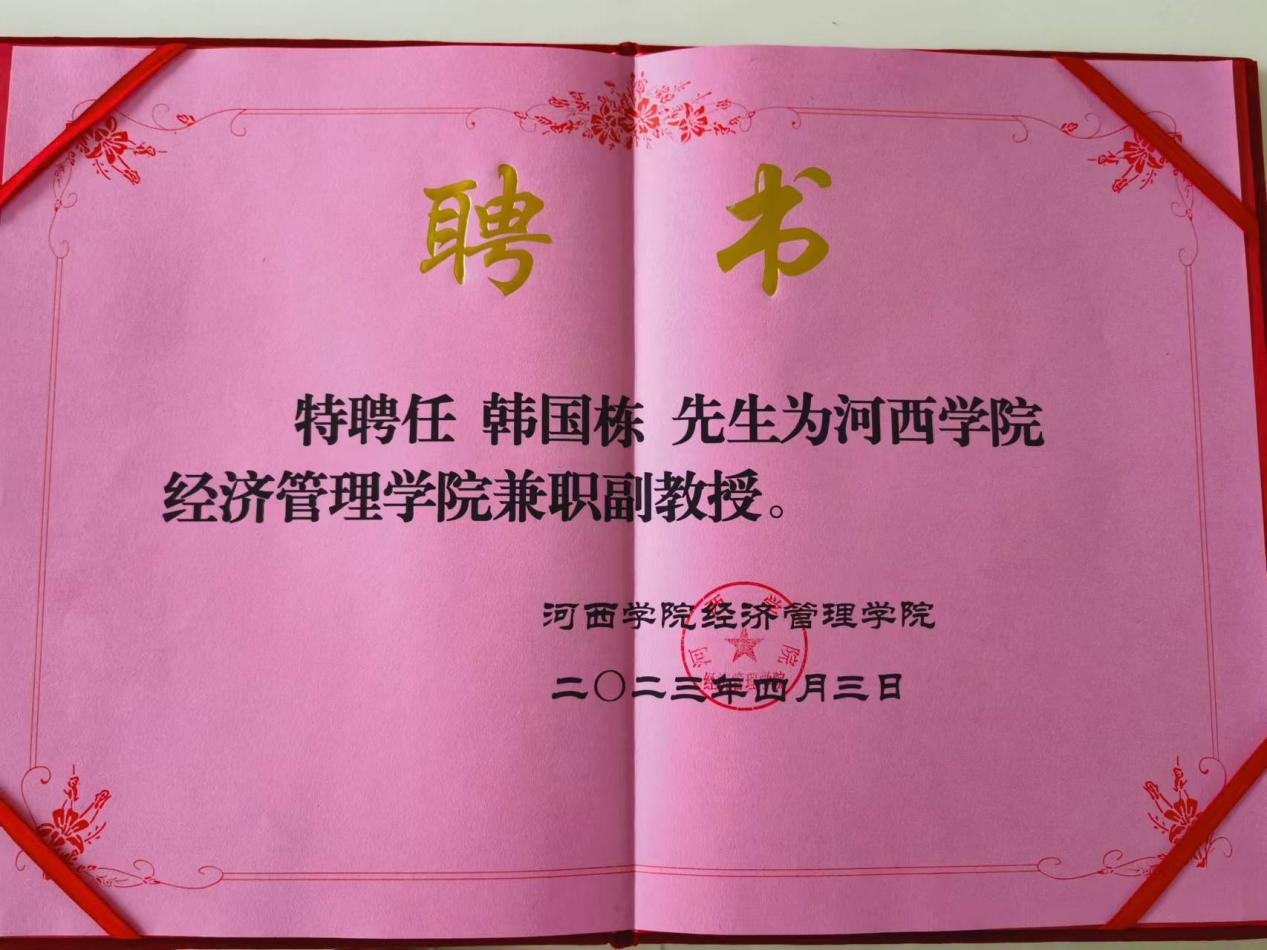 聘 书
特聘任 韩国栋 先生为河西学院
经济管理学院兼职副教授。
河西学院经济管理学院
二〇二三年四月三日
河西学院
经济管理学院